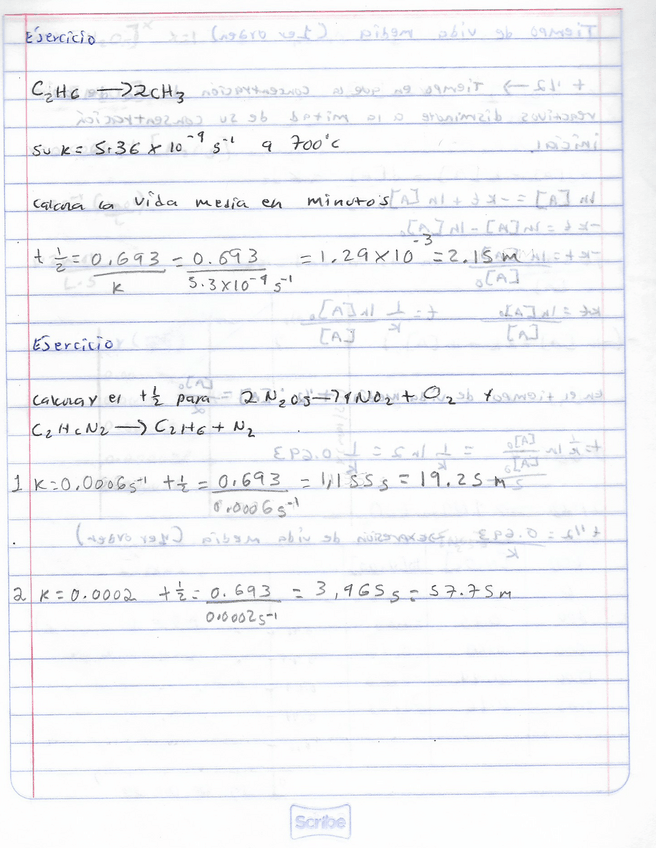 Ejercicio
C2H6 → 2CH3
su k = 5.36 x 10⁻⁴ s⁻¹ a 700°C
Calcula la vida media en minutos
t ½ = 0.693/k = 0.693/5.3x10⁻⁴ s⁻¹ = 1.29x10⁻³ = 2.15 m
Ejercicio
Calcular el t½ para 2N2O5 → 4NO2 + O2 y
C2H6N2 → C2H6 + N2
1 k=0.0006s⁻¹ t½ = 0.693/0.0006s⁻¹ = 1,155s = 19.25 m
2 k=0.0002 t½ = 0.693/0.0002s⁻¹ = 3,965s = 57.75m
Scribe